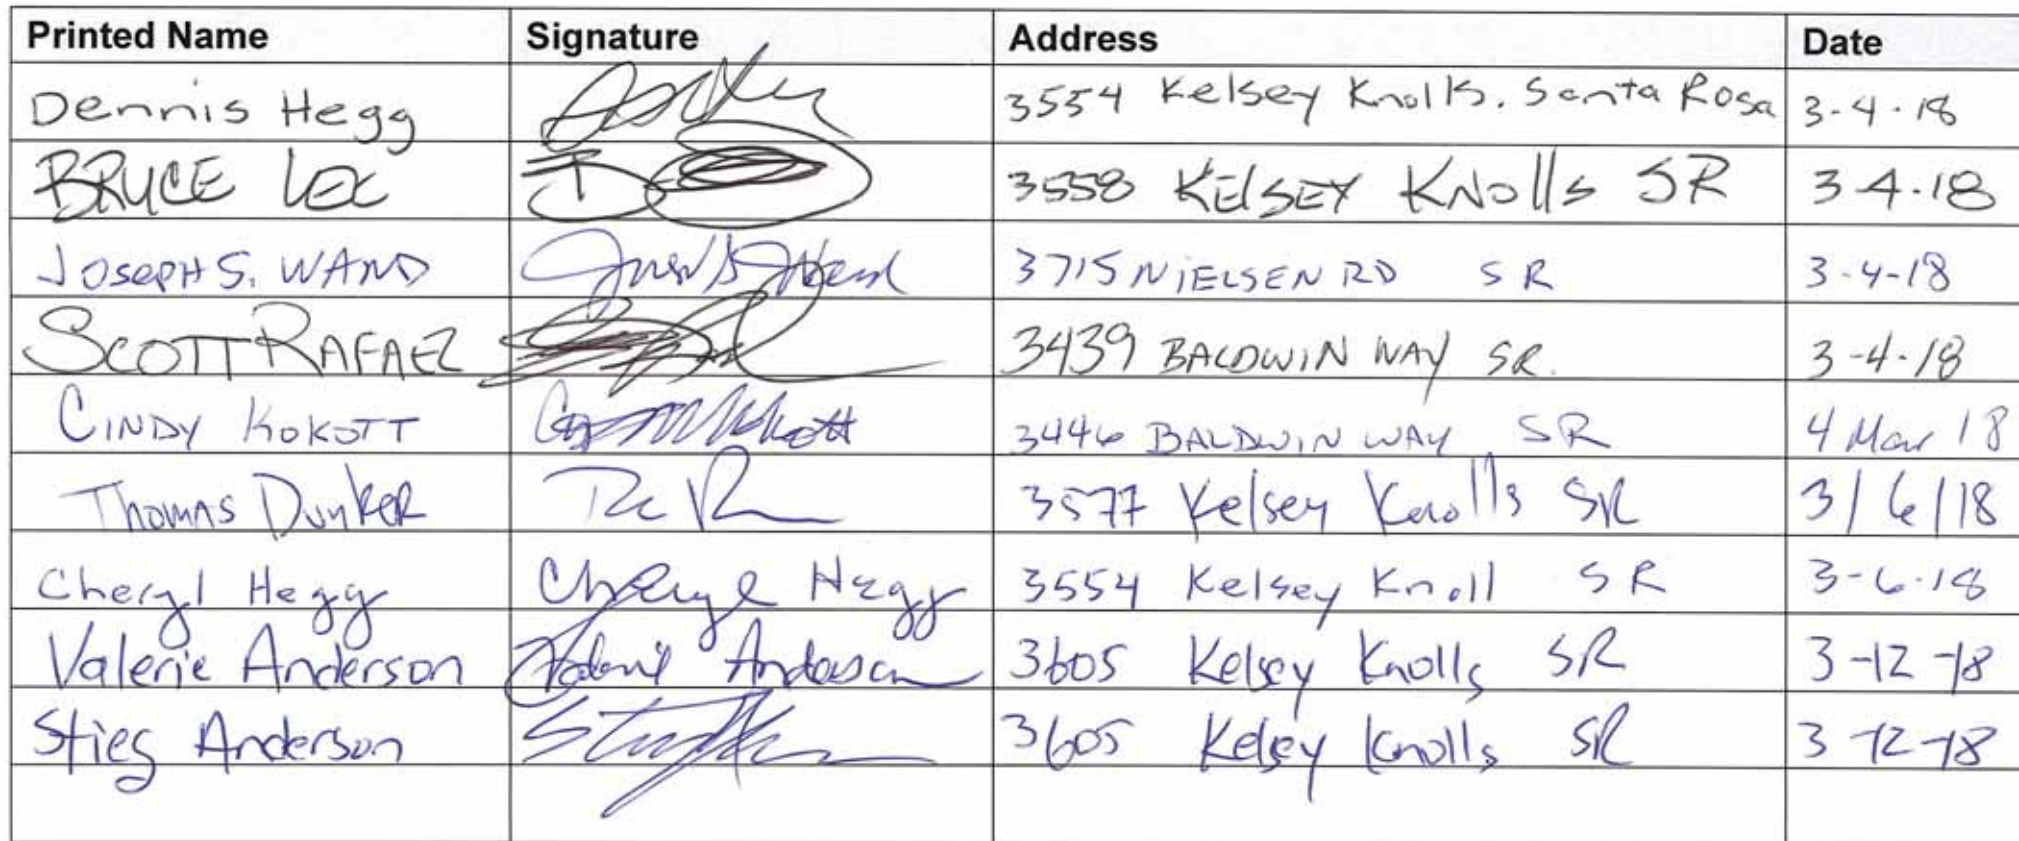 Printed Name Signature Address Date
Dennis Hegg 3554 Kelsey Knolls. Santa Rosa 3-4-18
BRUCE LEE 3558 KELSEY KNOLLS SR 3-4-18
JOSEPH S. WAND 3715 NIELSEN RD SR 3-4-18
SCOTT RAFAEL 3439 BALDWIN WAY SR. 3-4-18
CINDY KOKOTT 3446 BALDWIN WAY SR 4 Mar 18
Thomas Dunker 3577 Kelsey Knolls SR 3/6/18
Cheryl Hegg Cheryl Hegg 3554 Kelsey Knoll SR 3-6-18
Valerie Anderson Valerie Anderson 3605 Kelsey Knolls SR 3-12-18
Stieg Anderson 3605 Kelsey Knolls SR 3-12-18